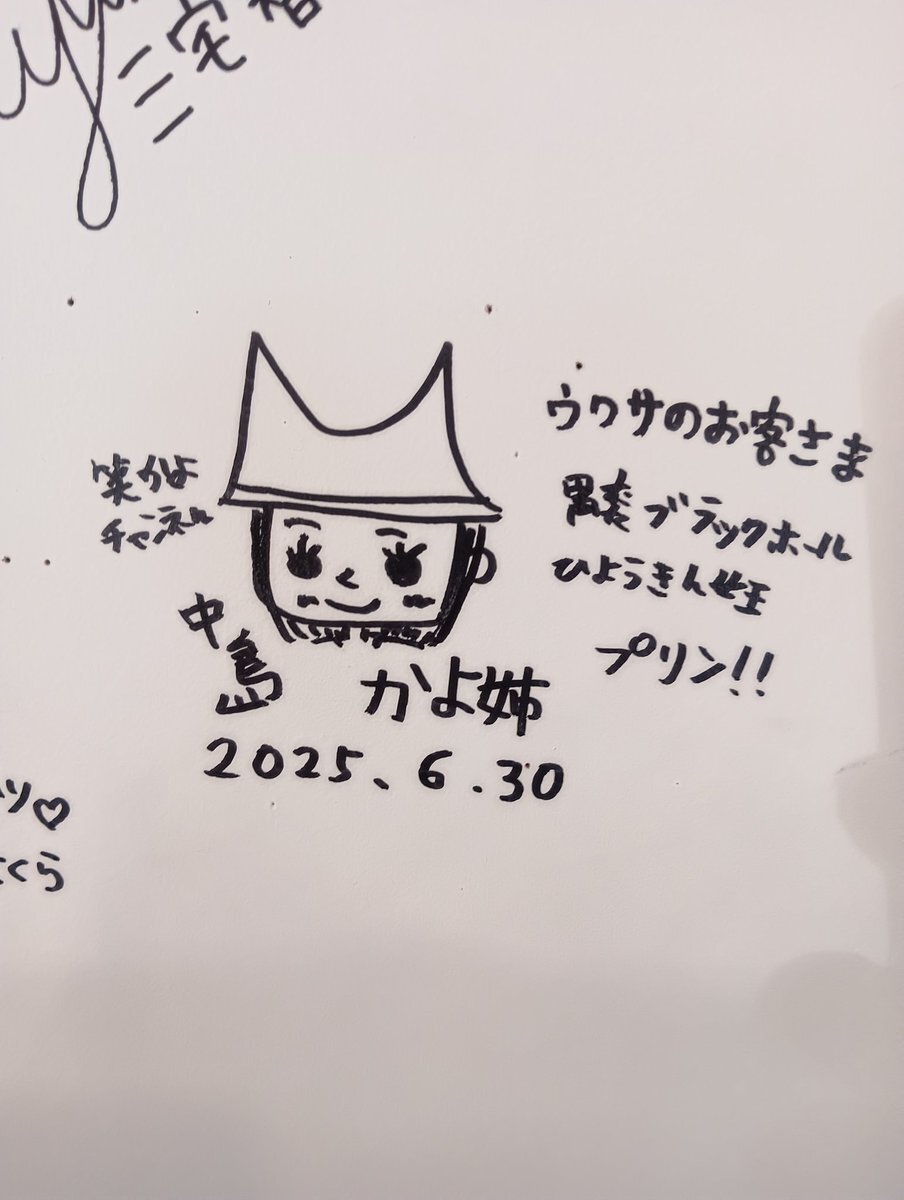 三宅
ウクサのお客さま
ブラックホール
ひょうきん女王
プリン!!
笑かよ
チャンネル
中島
かよ姉
2025.6.30
ツ♡
くら